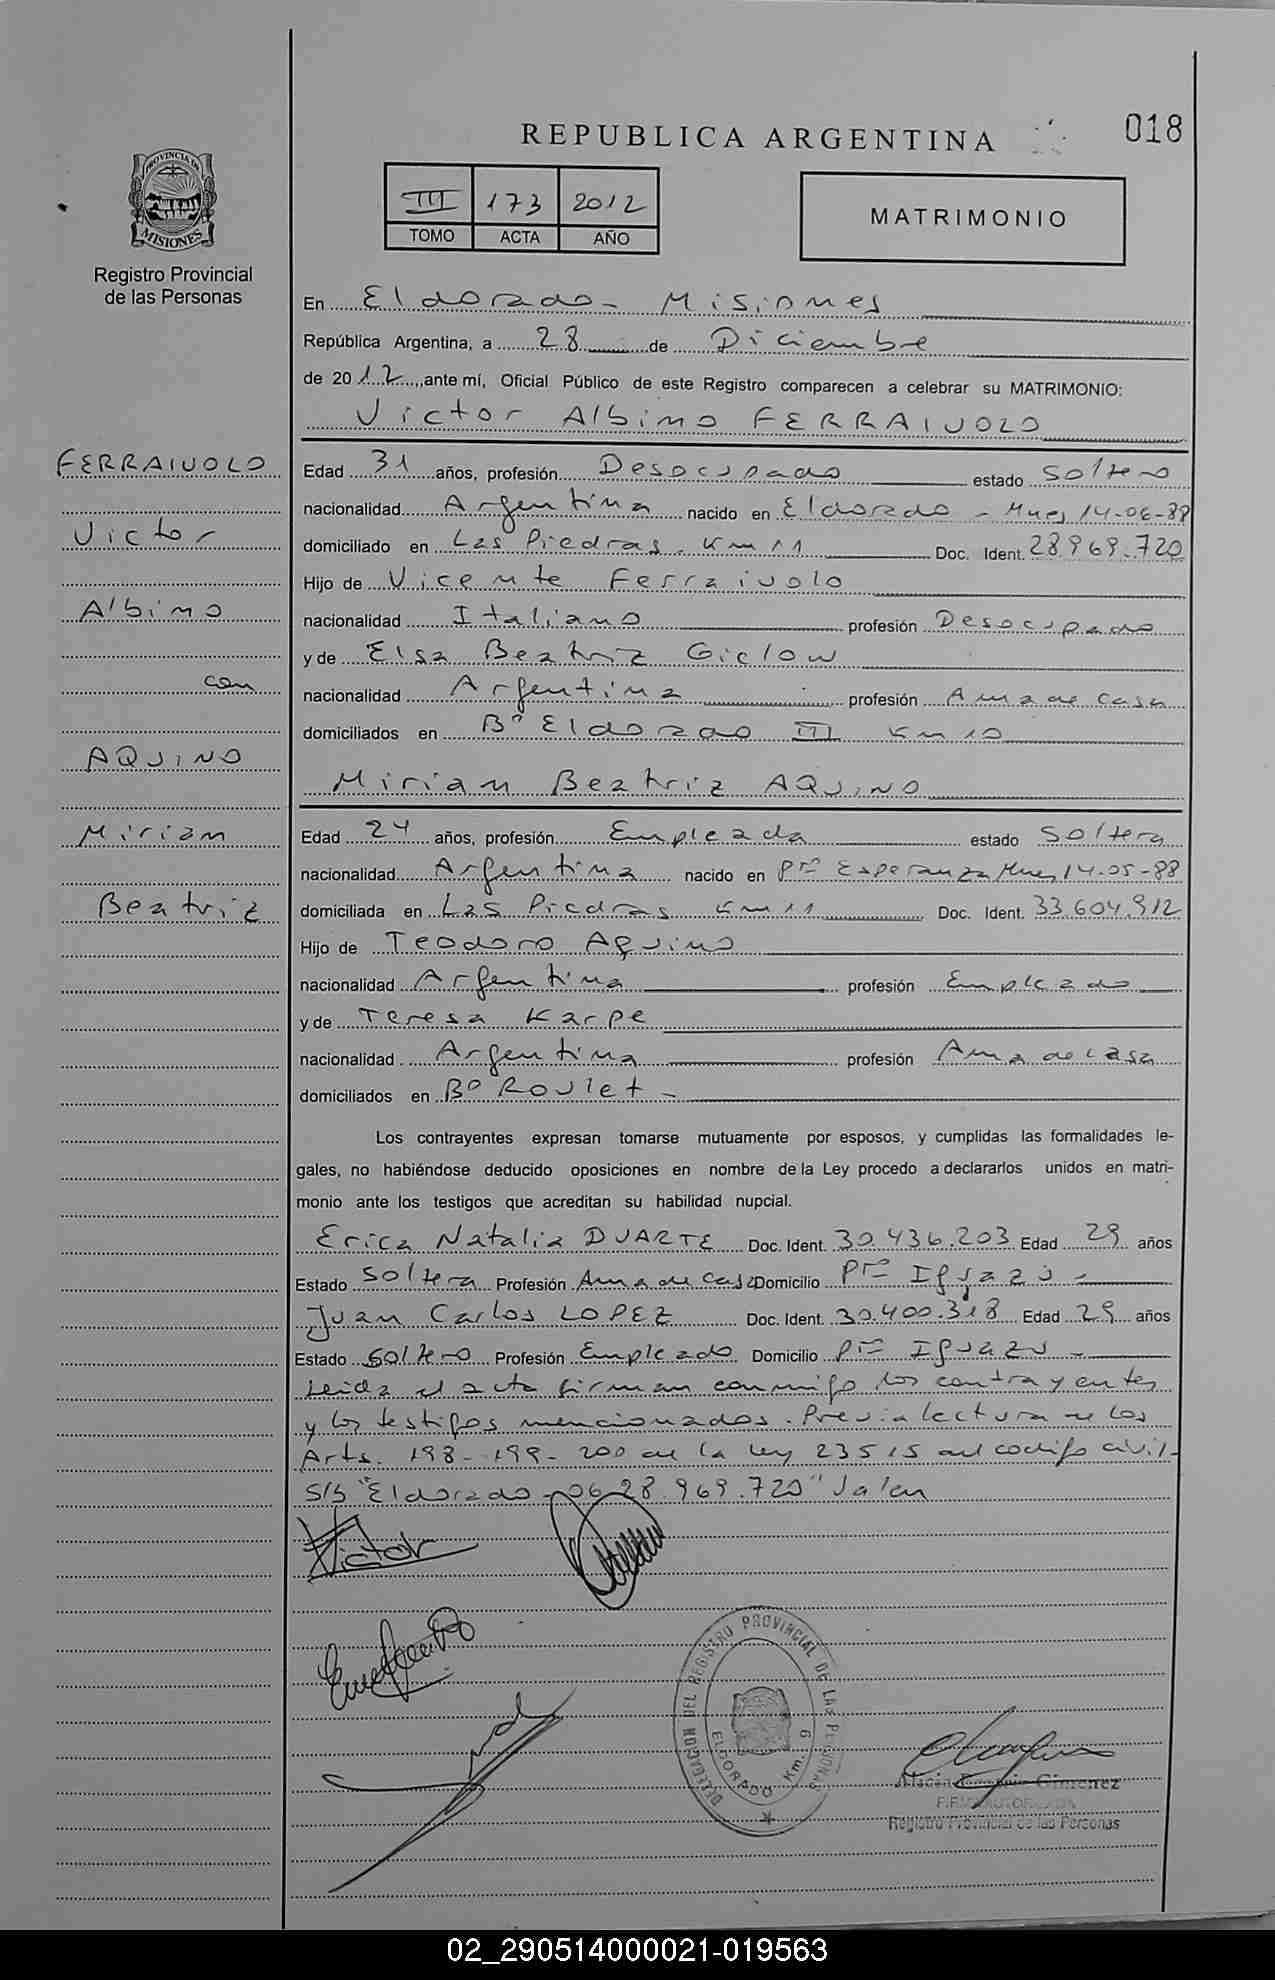 018
REPUBLICA ARGENTINA
III 173 2012
TOMO ACTA AÑO
MATRIMONIO
PROVINCIA DE
MISIONES
Registro Provincial
de las Personas
En Eldorado - Misiones
República Argentina, a 28 de Diciembre
de 2012, ante mí, Oficial Público de este Registro comparecen a celebrar su MATRIMONIO:
Victor Albino FERRAIUOLO
FERRAIUOLO
Victor
Albino
con
AQUINO
Mirian
Beatriz
Edad 31 años, profesión Desocupado estado Soltero
nacionalidad Argentina nacido en Eldorado - Mnes 14-06-
domiciliado en Las Piedras. Km 11 Doc. Ident. 28.969.720
Hijo de Vicente Ferraiuolo
nacionalidad Italiano profesión Desocupado
y de Elsa Beatriz Giclow
nacionalidad Argentina profesión Ama de casa
domiciliados en Bº Eldorado III Km 10
Mirian Beatriz AQUINO
Edad 24 años, profesión Empleada estado Soltera
nacionalidad Argentina nacido en Pto Esperanza Mnes 14-05-88
domiciliada en Las Piedras Km 11 Doc. Ident. 33.604.912
Hijo de Teodoro Aquino
nacionalidad Argentina profesión Empleado
y de Teresa Karpe
nacionalidad Argentina profesión Ama de casa
domiciliados en Bº Roulet -
Los contrayentes expresan tomarse mutuamente por esposos, y cumplidas las formalidades le-
gales, no habiéndose deducido oposiciones en nombre de la Ley procedo a declararlos unidos en matri-
monio ante los testigos que acreditan su habilidad nupcial.
Erica Natalia DUARTE Doc. Ident. 30.436.203 Edad 29 años
Estado Soltera Profesión Ama de casa Domicilio Pto Iguazu -
Juan Carlos LOPEZ Doc. Ident. 30.400.318 Edad 29 años
Estado Soltero Profesión Empleado Domicilio Pto Iguazu -
Leida el acta firman conmigo los contrayentes
y los testigos mencionados. Previa lectura de los
Arts. 198-199-200 de la ley 23515 del codigo civil-
S/b "Eldorado - 06 28.969.720" Valen
Victor
DELEGACION DEL REGISTRO PROVINCIAL DE LAS PERSONAS
ELDORADO Km. 9
Gimenez
FIRMA AUTORIZADA
Registro Provincial de las Personas
02_290514000021-019563